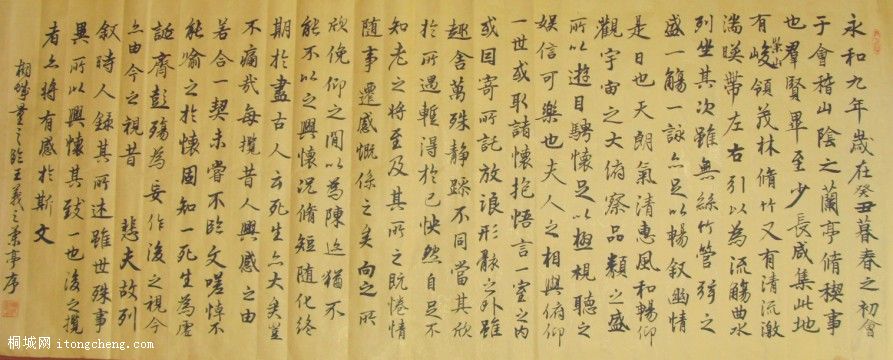 永和九年歲在癸丑暮春之初會
于會稽山陰之蘭亭脩稧事
也羣賢畢至少長咸集此地
有崇山峻領茂林脩竹又有清流激
湍暎帶左右引以為流觴曲水
列坐其次雖無絲竹管弦之
盛一觴一詠亦足以暢叙幽情
是日也天朗氣清惠風和暢仰
觀宇宙之大俯察品類之盛
所以遊目騁懷足以極視聽之
娛信可樂也夫人之相與俯仰
一世或取諸懷抱悟言一室之內
或因寄所託放浪形骸之外雖
趣舍萬殊静躁不同當其欣
於所遇暫得於己怏然自足不
知老之將至及其所之既惓情
隨事遷感慨係之矣向之所
欣俛仰之間以為陳迹猶不
能不以之興懷況脩短隨化終
期於盡古人云死生亦大矣豈
不痛哉每攬昔人興感之由
若合一契未嘗不臨文嗟悼不
能喻之於懷固知一死生為虛
誕齊彭殤為妄作後之視今
亦由今之視昔 悲夫故列
叙時人錄其所述雖世殊事
異所以興懷其致一也後之攬
者亦將有感於斯文
桐城 臨王羲之蘭亭序
桐城网 itongcheng.com